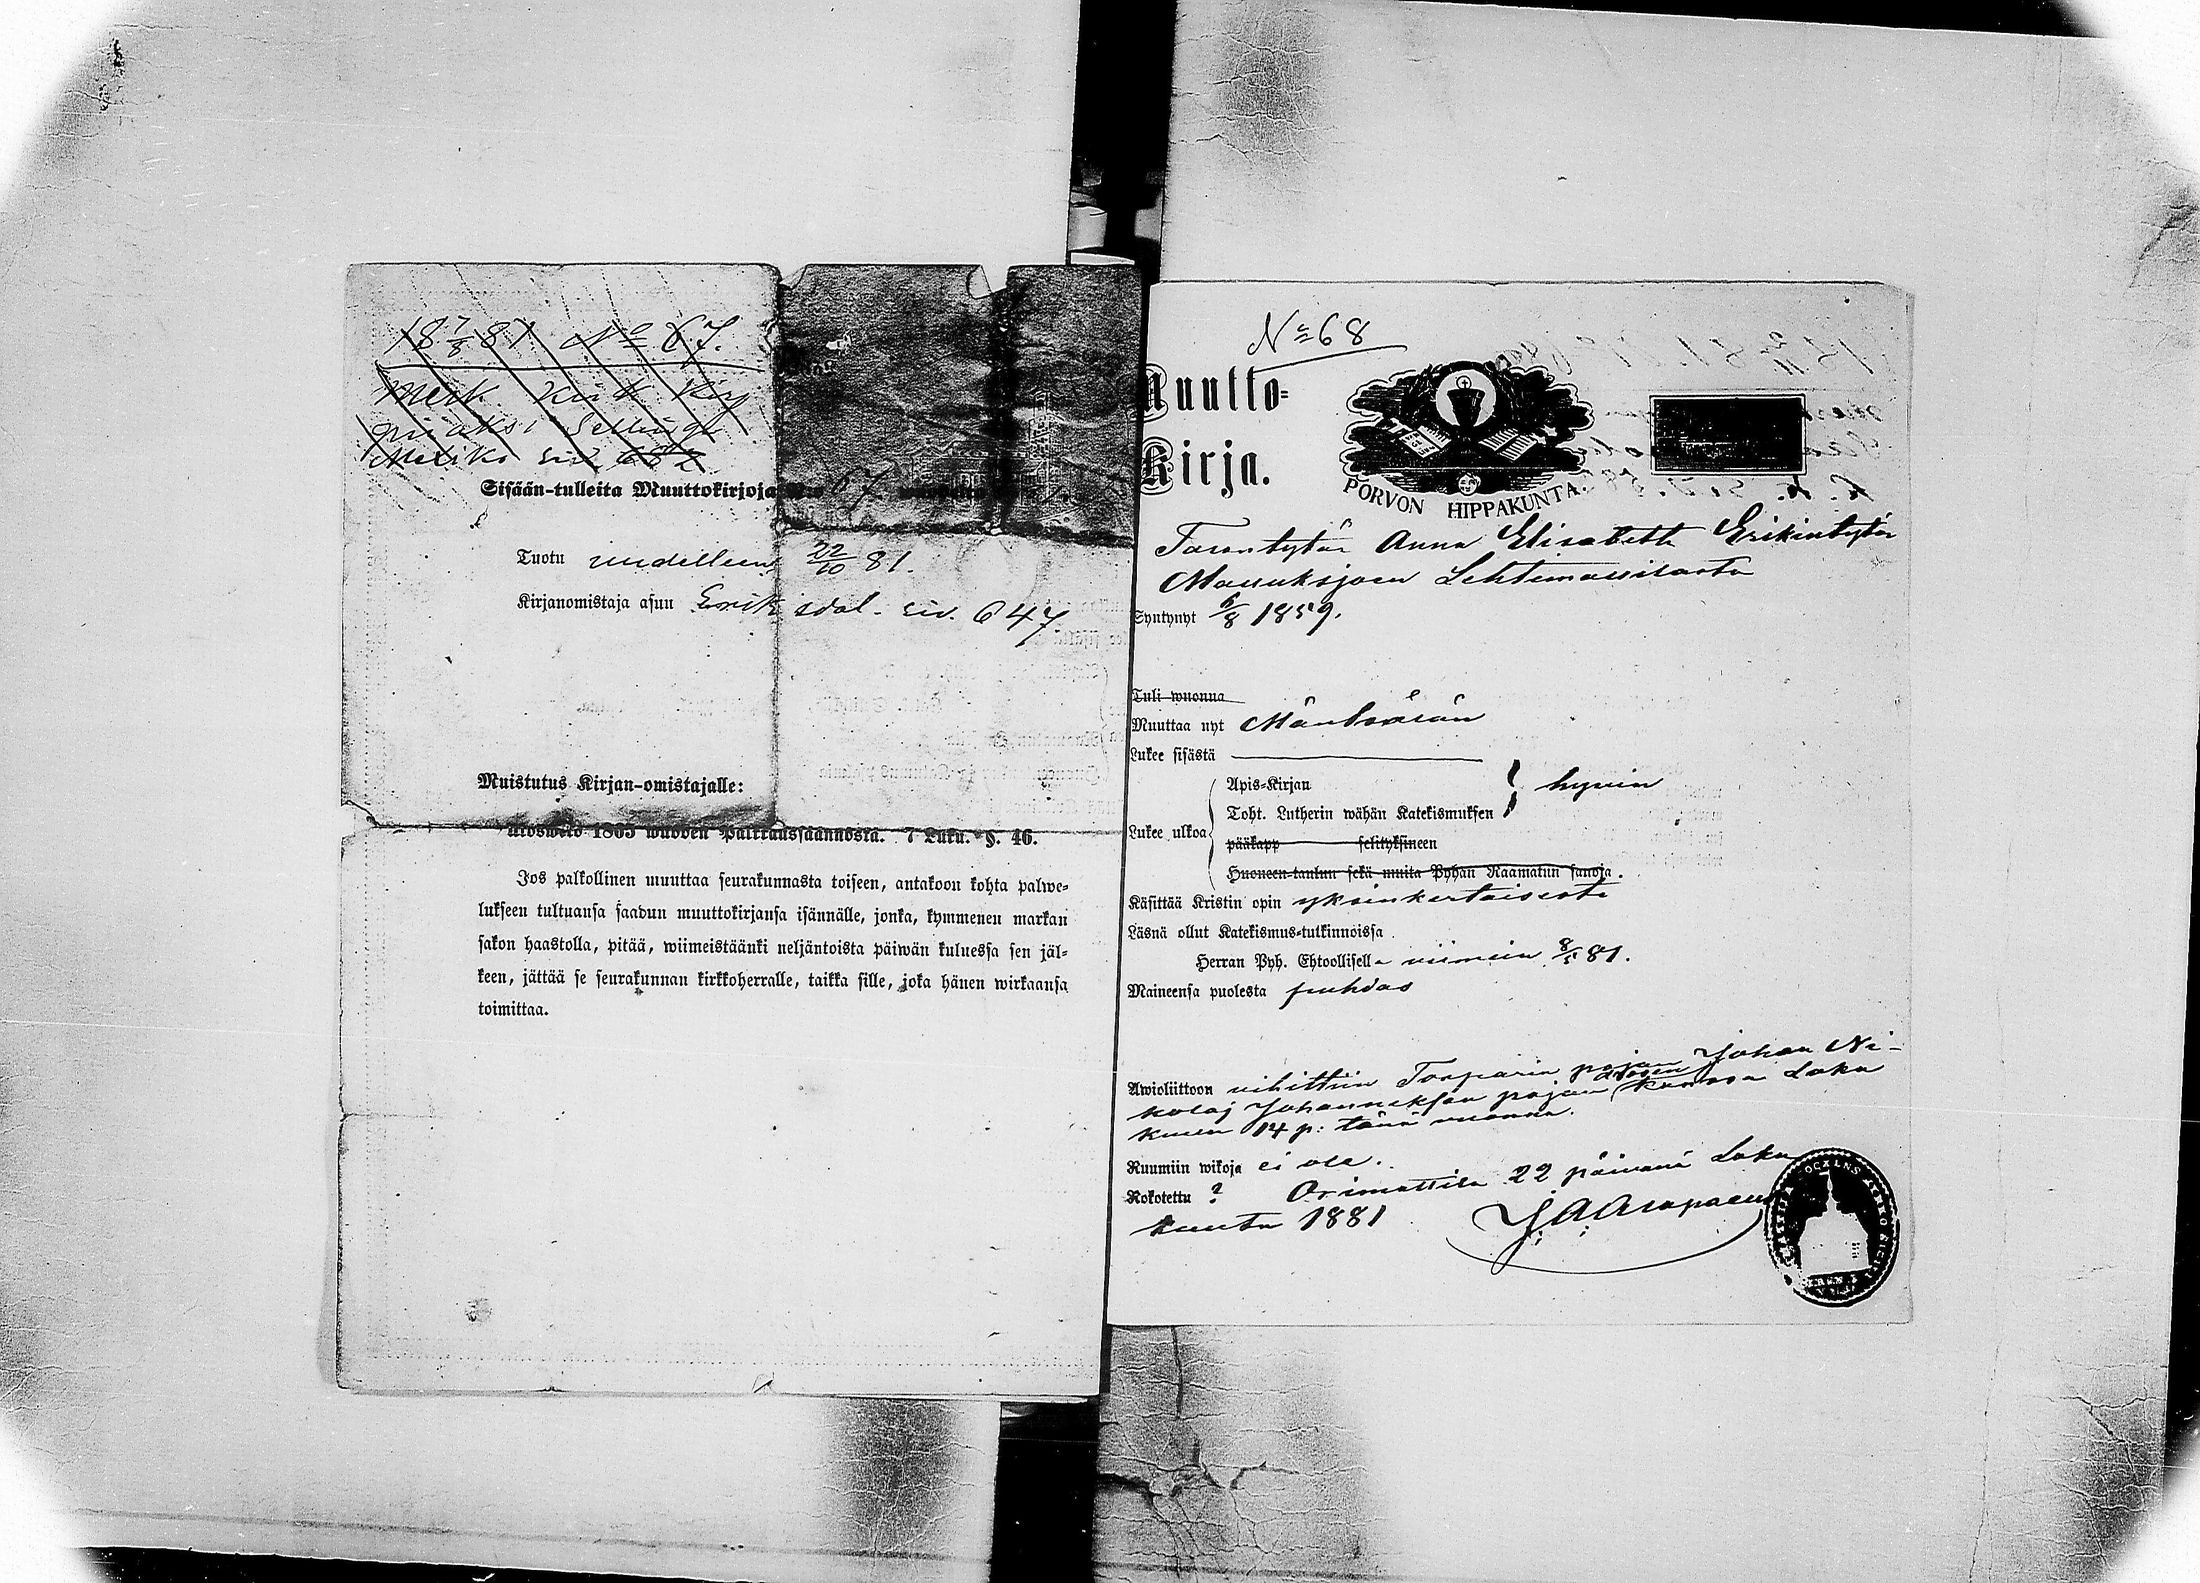 18 7/8 81 No 67.
Merk. Kirk. Kirj.
siv. 682
Sisään-tulleita Muuttokirjoja N:o 67
Tuotu uudelleen 22/10 81.
Kirjanomistaja asuu Eriksdal. siv. 647
Muistutus Kirjan-omistajalle:
Ulosweto 1865 wuoden Palkkaussäännöstä. 7 Luku. §. 46.
Jos palkollinen muuttaa seurakunnasta toiseen, antakoon kohta palwe-
lukseen tultuansa saadun muuttokirjansa isännälle, jonka, kymmenen markan
sakon haastolla, pitää, wiimeistäänki neljäntoista päiwän kuluessa sen jäl-
keen, jättää se seurakunnan kirkkoherralle, taikka sille, joka hänen wirkaansa
toimittaa.
No 68
Muutto-
Kirja.
PORVON HIPPAKUNTA.
Anna Elisabeth Erikintytär
Mallusjoen Lehtimassilasta
Syntynyt 6/8 1859.
Tuli wuonna
Muuttaa nyt Mäntsälään
Lukee sisästä
Apis-Kirjan
Toht. Lutherin wähän Katekismuksen } hyvin
Lukee ulkoa
pääkapp selityksineen
Huoneen-taulun sekä muita Pyhän Raamatun sanoja.
Käsittää Kristin opin yksinkertaisesti
Läsnä ollut Katekismus-tutkinnoissa
Herran Pyh. Ehtoollisella viimein 8/5 81.
Maineensa puolesta puhdas
Awioliittoon vihittiin Torparin pojan Johan Ni-
kolaj Johanneksen pojan kanssa Loka
kuun 14 p: tänä vuonna.
Ruumiin wikoja ei ole.
Rokotettu ? Orimattila 22 päivänä Loka
kuuta 1881